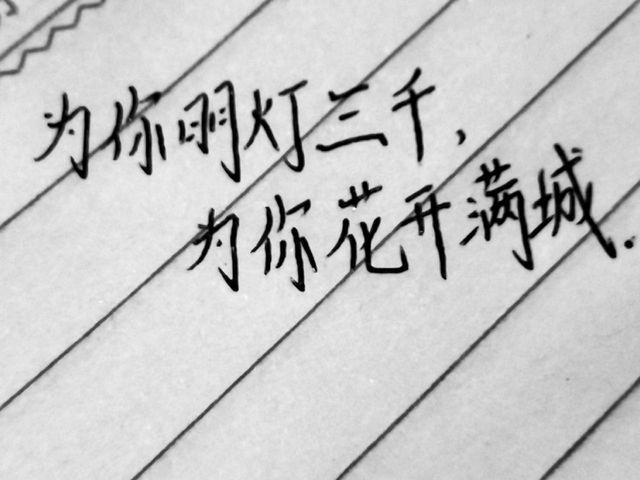 为你明灯三千,
为你花开满城.